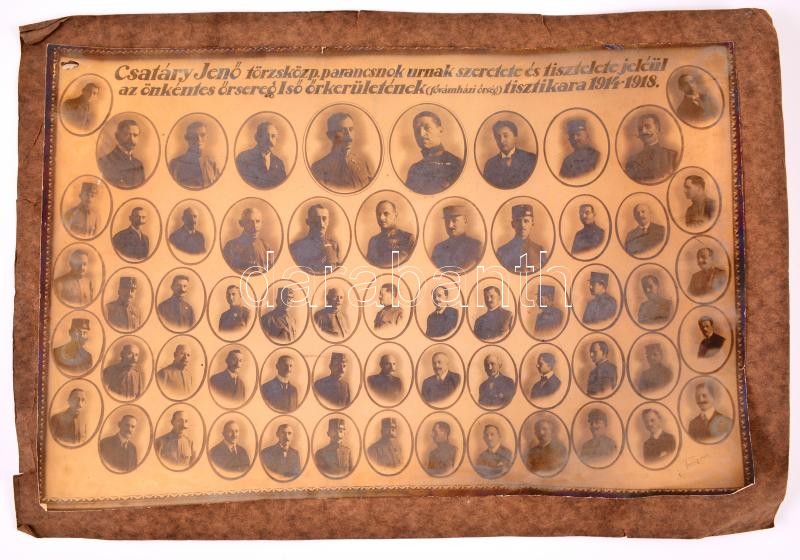 Csatáry Jenő törzsközp. parancsnok urnak szeretete és tisztelete jeléül
az önkéntes őrsereg Iső őrkerületének (fővámházi őrség) tisztikara 1914-1918.
darabanth